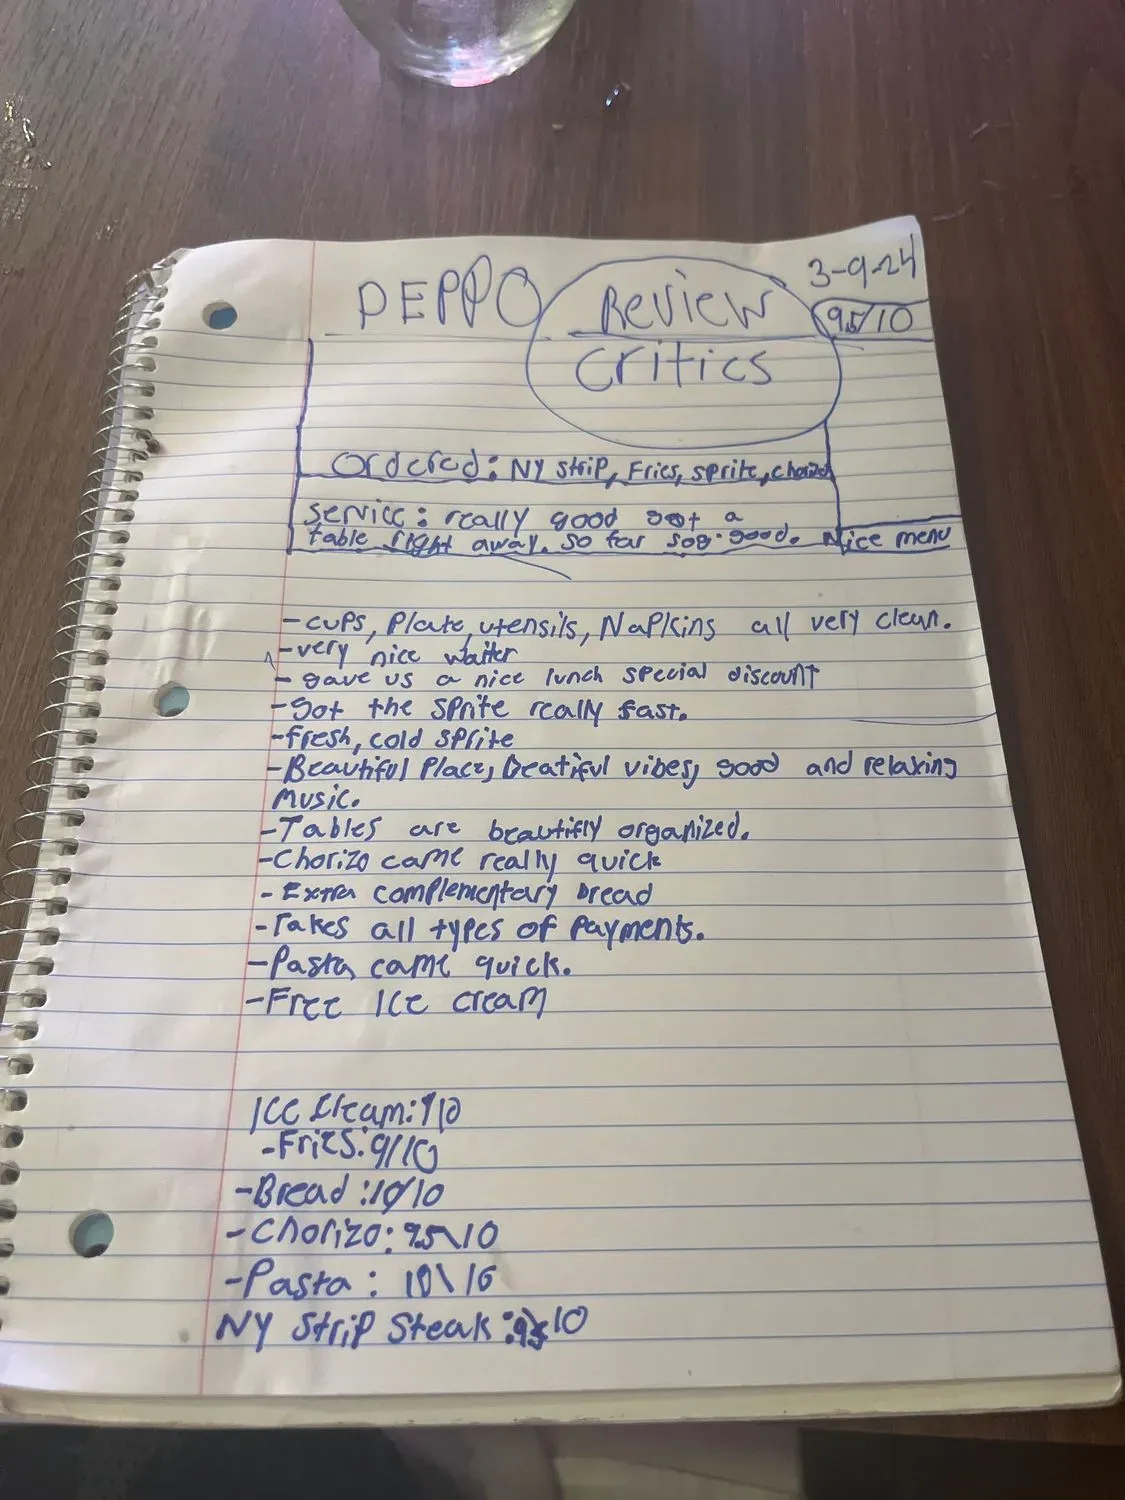 PEPPO Review 3-9-24
95/10
Critics
Ordered: NY Strip, Fries, sprite, chorizo
service: really good got a
table right away. so far soo good. Nice menu
- cups, Plate, utensils, Napkins all very clean.
- very nice waiter
- gave us a nice lunch special discount
- Got the sprite really fast.
- fresh, cold sprite
- Beautiful Place, beatiful vibes, good and relaxing
music.
- Tables are beautifly organized.
- Chorizo came really quick
- Extra complementary bread
- Takes all types of Payments.
- Pasta came quick.
- Free Ice cream
Ice cream:
- Fries: 9/10
- Bread: 10/10
- Chorizo: 95\10
- Pasta: 10\10
NY Strip Steak: 10